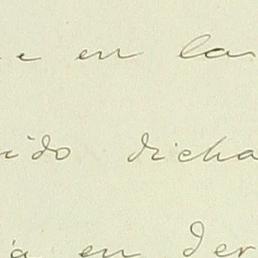 e en la
ido dicha
a en der